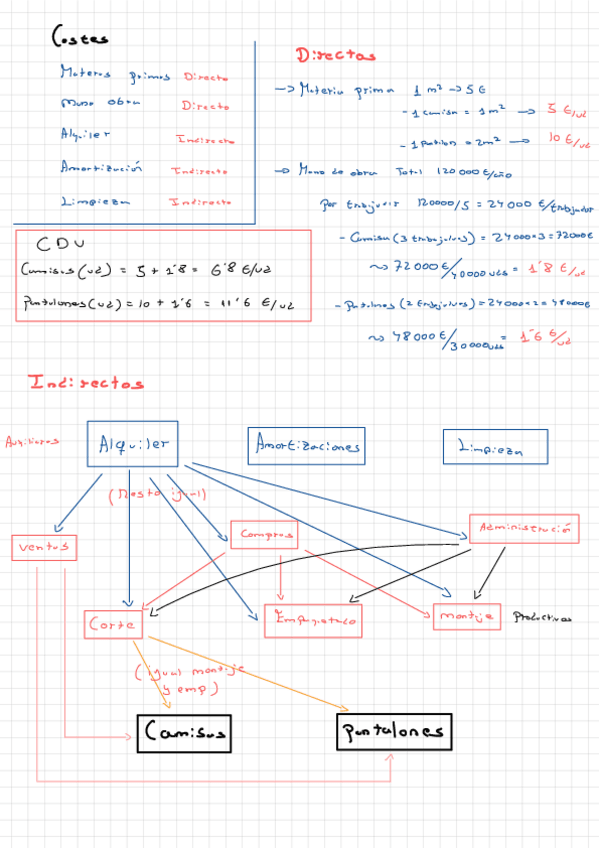 Costes
Materas primas Directo
Mano obra Directo
Alquiler Indirecto
Amortización Indirecto
Limpieza Indirecto
CDU
Camisas (ud) = 5 + 1'8 = 6'8 €/ud
Pantalones (ud) = 10 + 1'6 = 11'6 €/ud
Directos
-> Materia prima 1 m² -> 5 €
- 1 camisa = 1m² -> 5 €/ud
- 1 pantalon = 2m² -> 10 €/ud
-> Mano de obra Total 120 000 €/año
Por trabajador 120000/5 = 24 000 €/trabajador
- Camisa (3 trabajadores) = 24000×3 = 72000€
72 000 €/40000 uds = 1'8 €/ud
- Pantalones (2 trabajadores) = 24000×2 = 48000€
48 000 €/30000 uds = 1'6 €/ud
Indirectos
Auxiliares
Alquiler
Amortizaciones
Limpieza
(Resto igual)
Ventas
Compras
Administración
Corte
Empaquetado
montaje
Productivos
(igual montaje
y emp)
Camisas
Pantalones